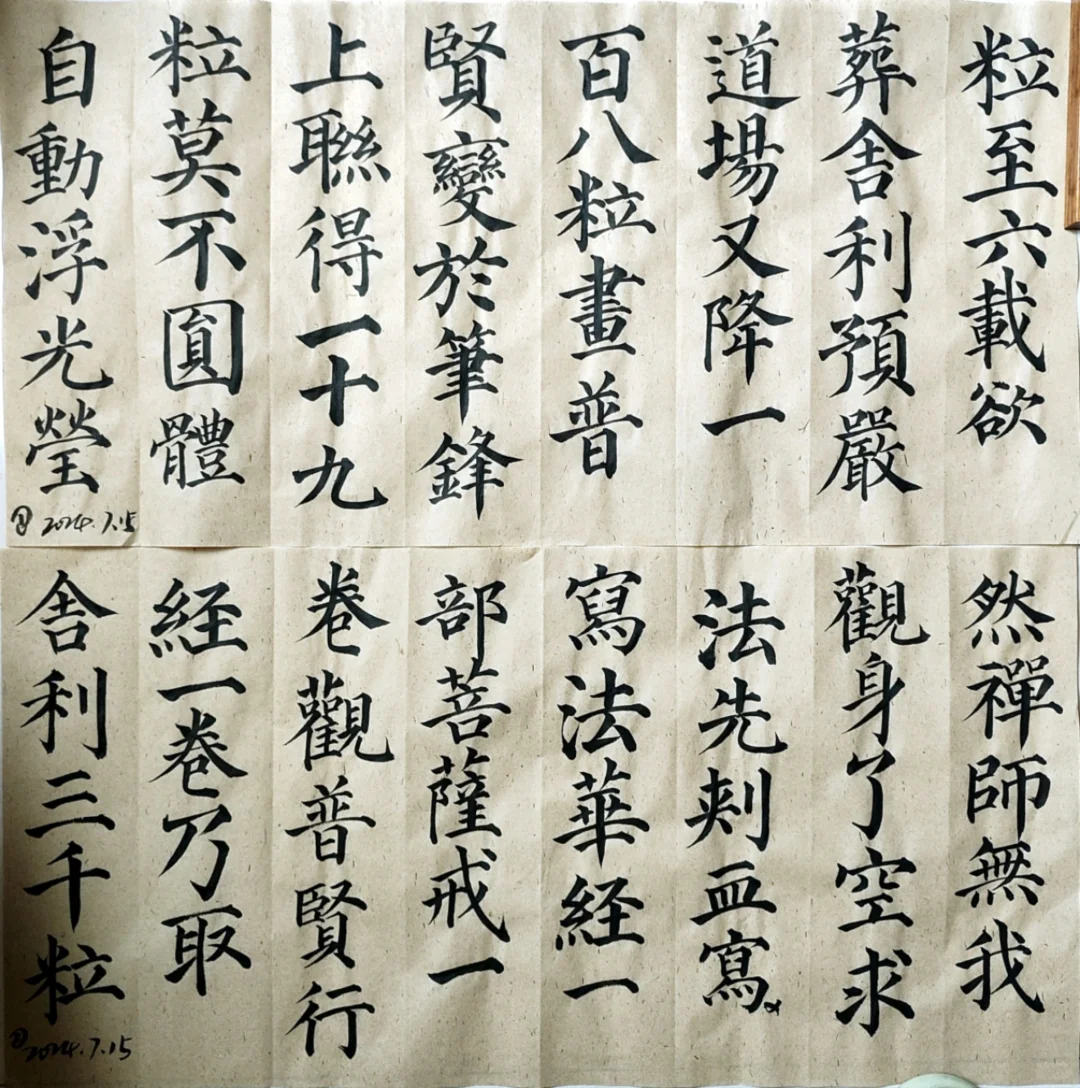 粒至六載欲
葬舎利預嚴
道場又降一
百八粒畫普
賢變於筆鋒
上聯得一十九
粒莫不圎體
自動浮光瑩
① 2024.7.15
然禪師無我
觀身了空求
法先刾血寫
寫法華経一
部菩薩戒一
卷觀普賢行
経一卷乃取
舎利三千粒
② 2024.7.15